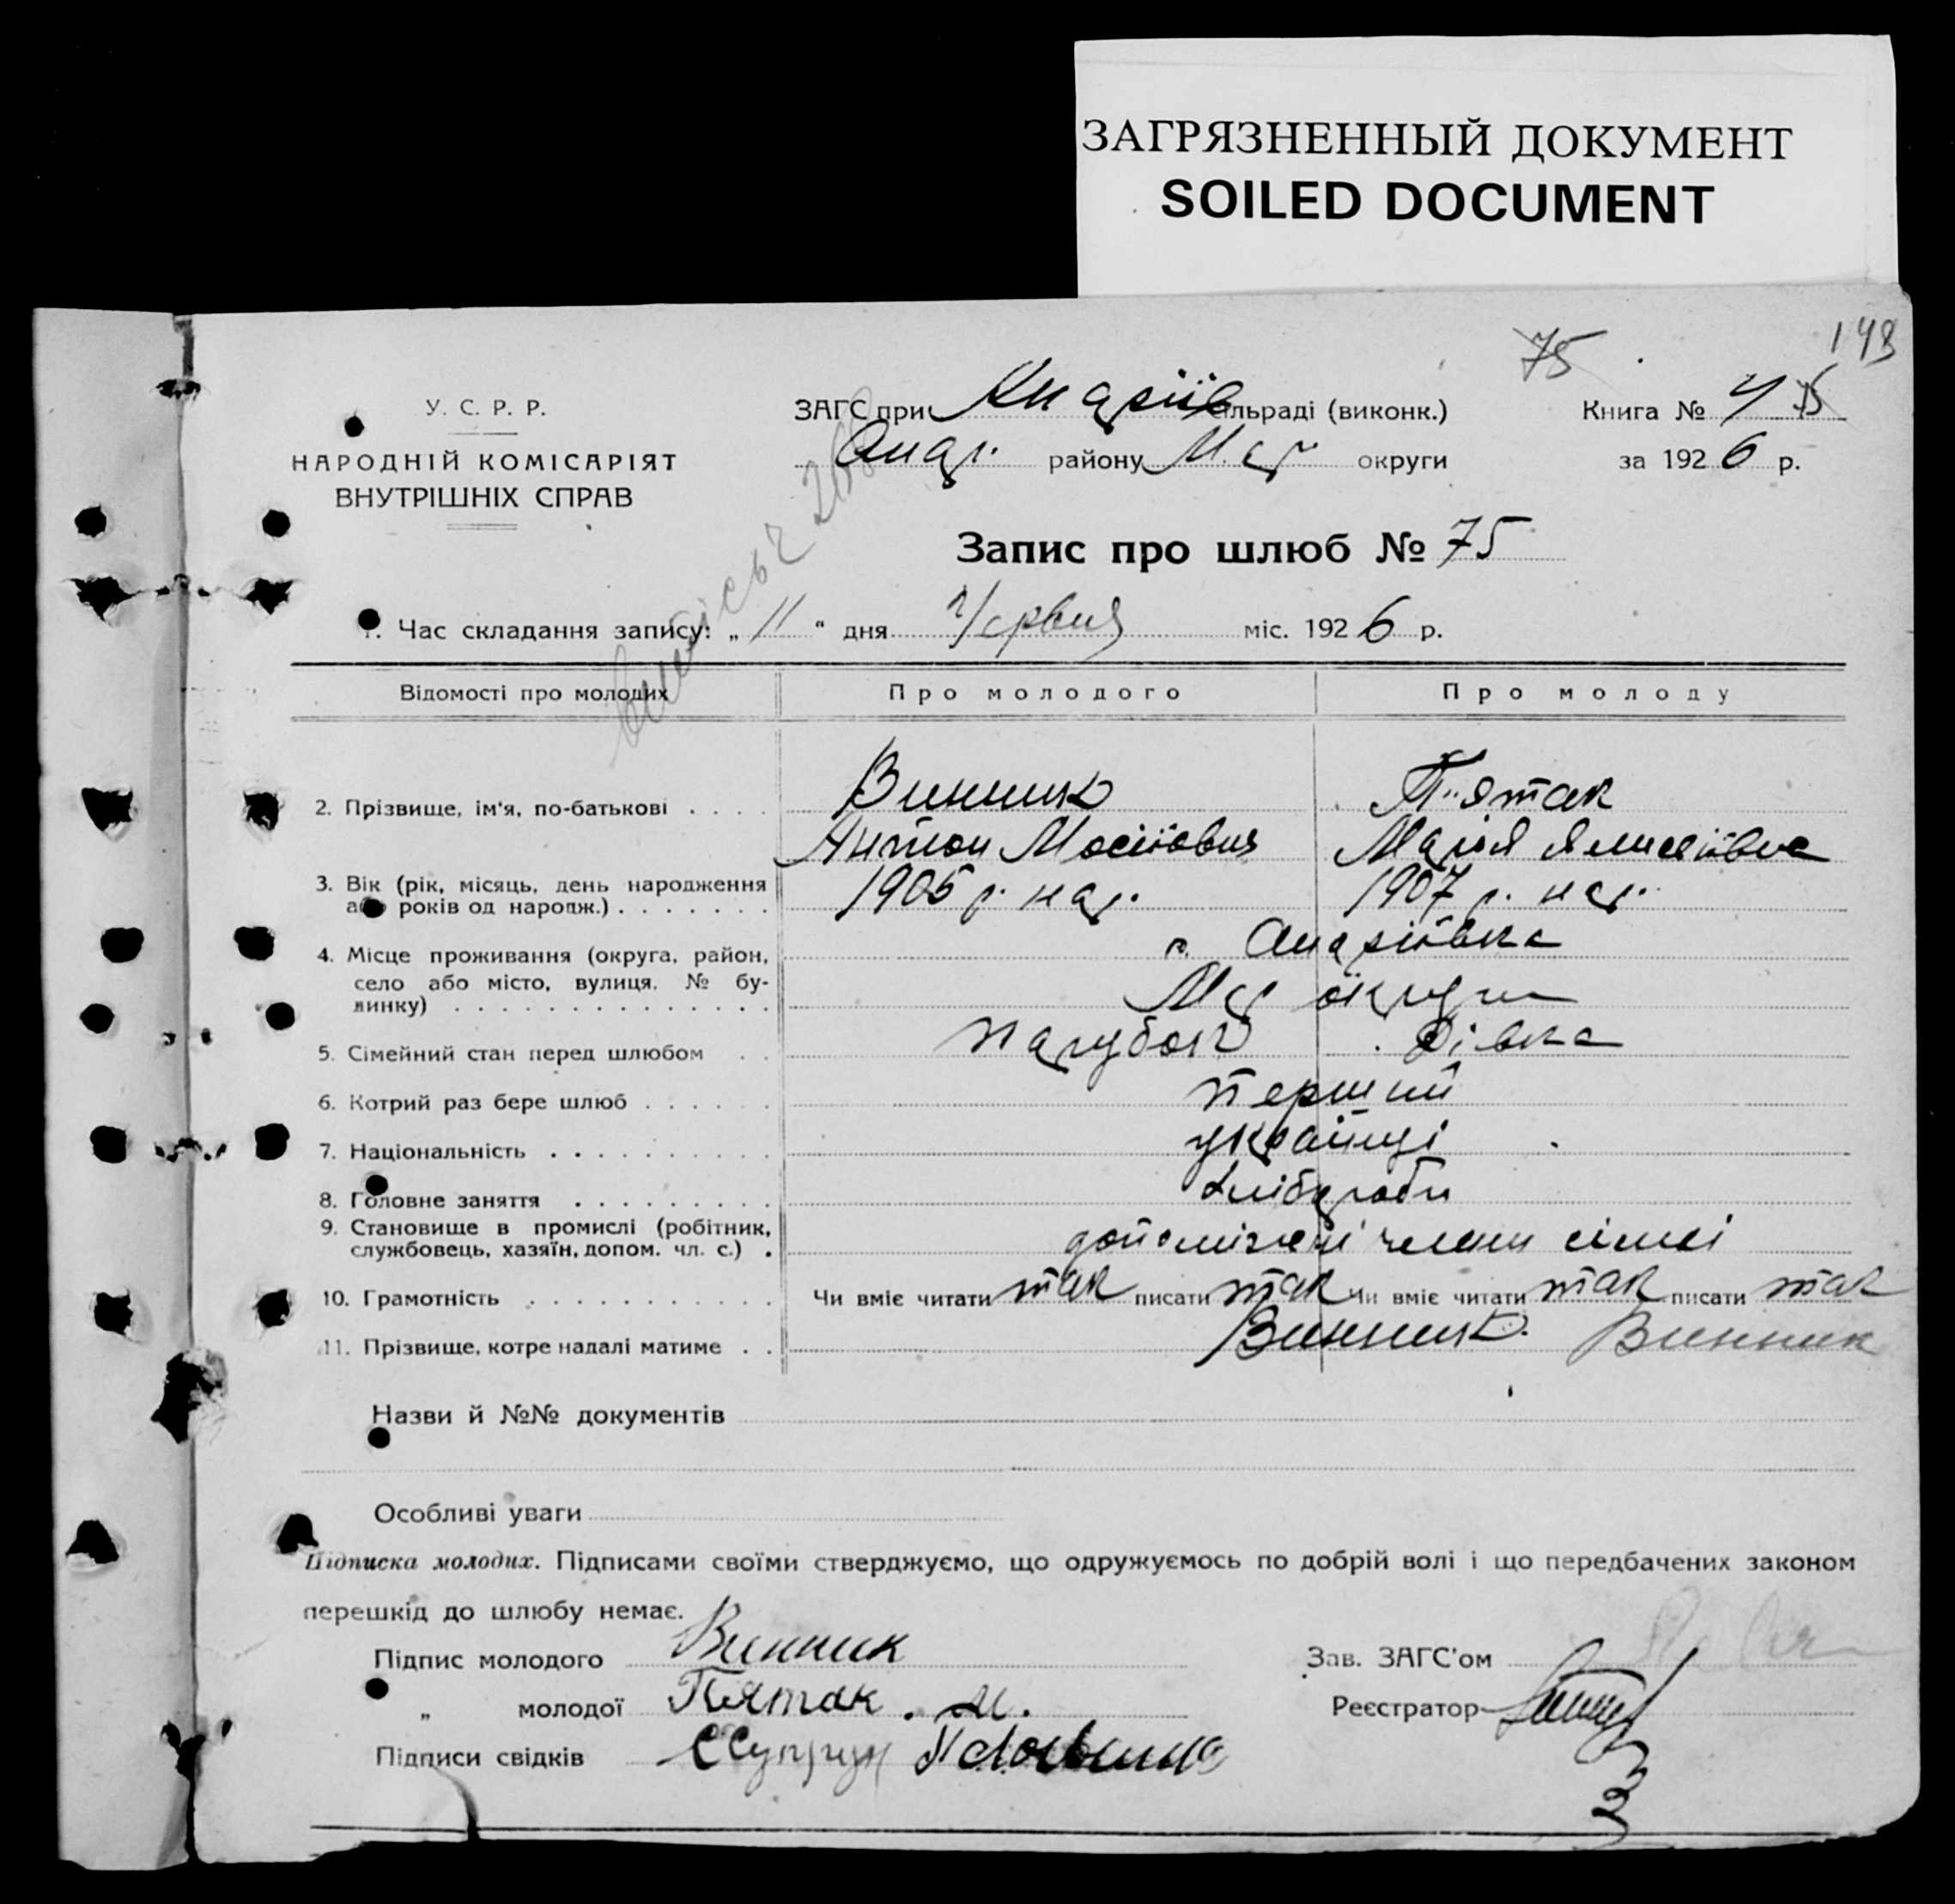 ЗАГРЯЗНЕННЫЙ ДОКУМЕНТ
SOILED DOCUMENT
75
198
У. С. Р. Р.
НАРОДНІЙ КОМІСАРІЯТ
ВНУТРІШНІХ СПРАВ
ЗАГС при Андріїв сільраді (виконк.)
Андр. району округи
Книга № 4 75
за 1926 р.
Запис про шлюб № 75
1. Час складання запису: „ 11 “ дня Червня міс. 1926 р.
Відомості про молодих Про молодого Про молоду
2. Прізвище, ім'я, по-батькові . . . . Винник П'ятак
Антон Мосійович Марія
3. Вік (рік, місяць, день народження 1905 р. нар. 1907 р. нар.
або років од народж.) . . . . . . .
4. Місце проживання (округа, район, с. Андріївка
село або місто, вулиця. № бу-
динку) . . . . . . . . . . . . . . округи
5. Сімейний стан перед шлюбом . . Парубок Дівка
6. Котрий раз бере шлюб . . . . . . Перший
7. Національність . . . . . . . . . . українці
8. Головне заняття . . . . . . . . . Хлібороби
9. Становище в промислі (робітник, допоміжні члени сімьї
службовець, хазяїн, допом. чл. с.) .
10. Грамотність . . . . . . . . . . . Чи вміє читати так писати так Чи вміє читати так писати так
11. Прізвище, котре надалі матиме . . Винник. Винник
Назви й №№ документів
Особливі уваги
Підписка молодих. Підписами своїми стверджуємо, що одружуємось по добрій волі і що передбачених законом
перешкід до шлюбу немає.
Підпис молодого Винник
Зав. ЗАГС'ом
„ молодої Пятак. М.
Реєстратор
Підписи свідків ССупрун